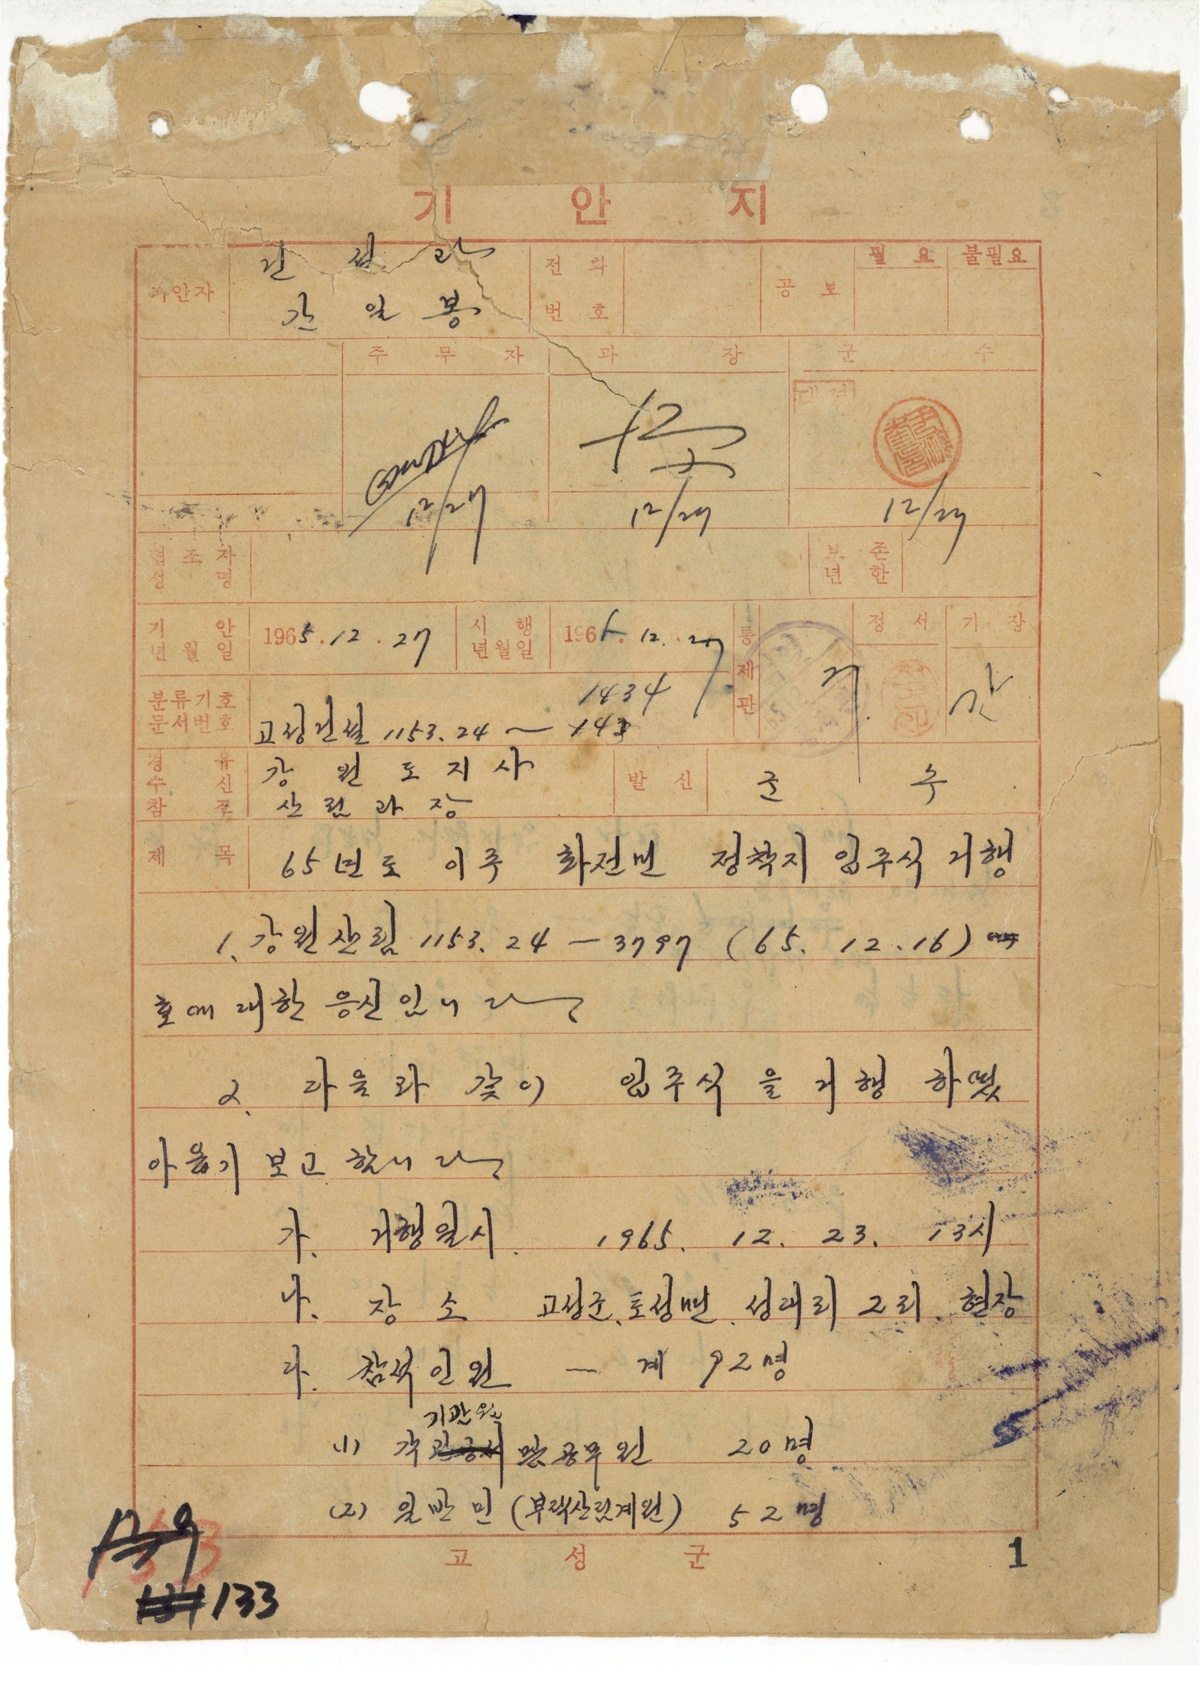 기 안 지
기안자 건설과 전화 공보 필요 불필요
간일봉 번호
주무자 과장 군수
대결
12/27 12/27 12/27
협조자 성명 보존 년한
기안 년월일 1965.12.27 시행 년월일 1965.12.27 통제관 정서 기장
분류기호 문서번호 고성건설 1153.24~ 1434
경유 수신 참조 강원도지사 발신 군수
산림과장
제목 65년도 이주 화전민 정착지 입주식 거행
1. 강원산림 1153.24-3797 (65.12.16)
호에 대한 응신입니다
2. 다음과 같이 입주식을 거행 하였
아옵기 보고 합니다
가. 거행일시. 1965. 12. 23. 13시
나. 장소 고성군. 토성면. 성대리 2리. 현장
다. 참석인원 - 계 92명
기관원
(1) 각 및 공무원 20명
(2) 일반민 (부락산림계원) 52명
고성군 1
133